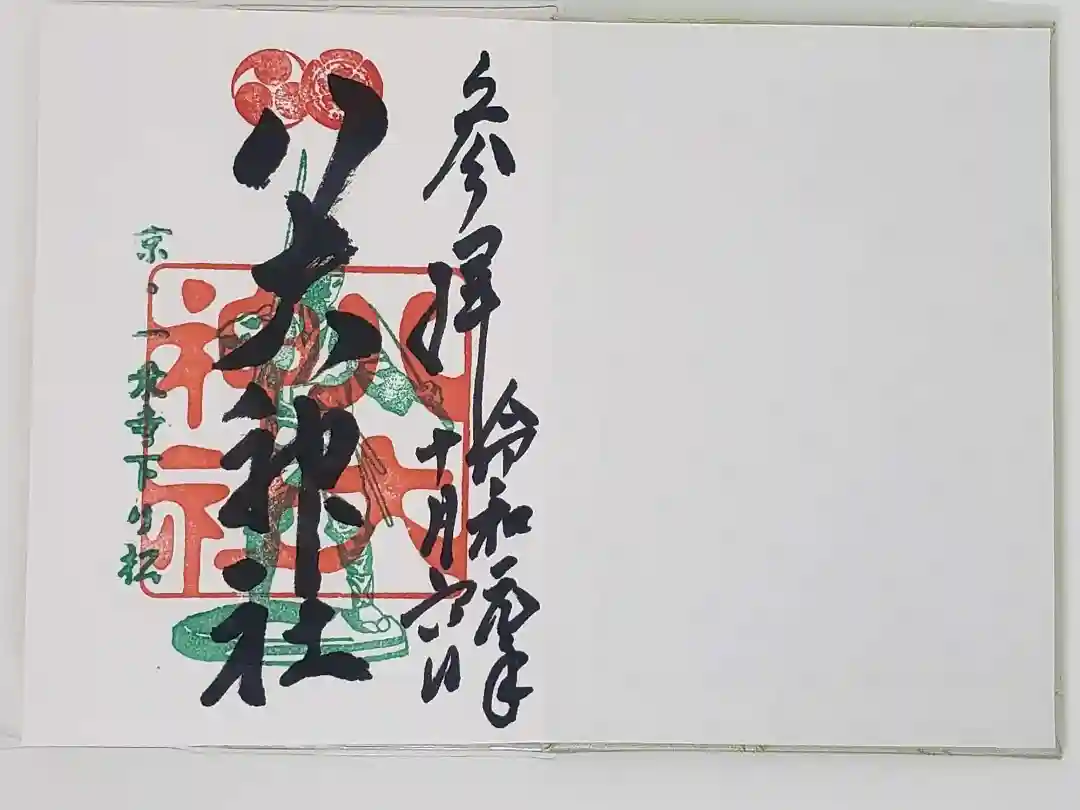 参拝
令和元年
十月六日
八大神社
八大神社
京。一乗寺下り松